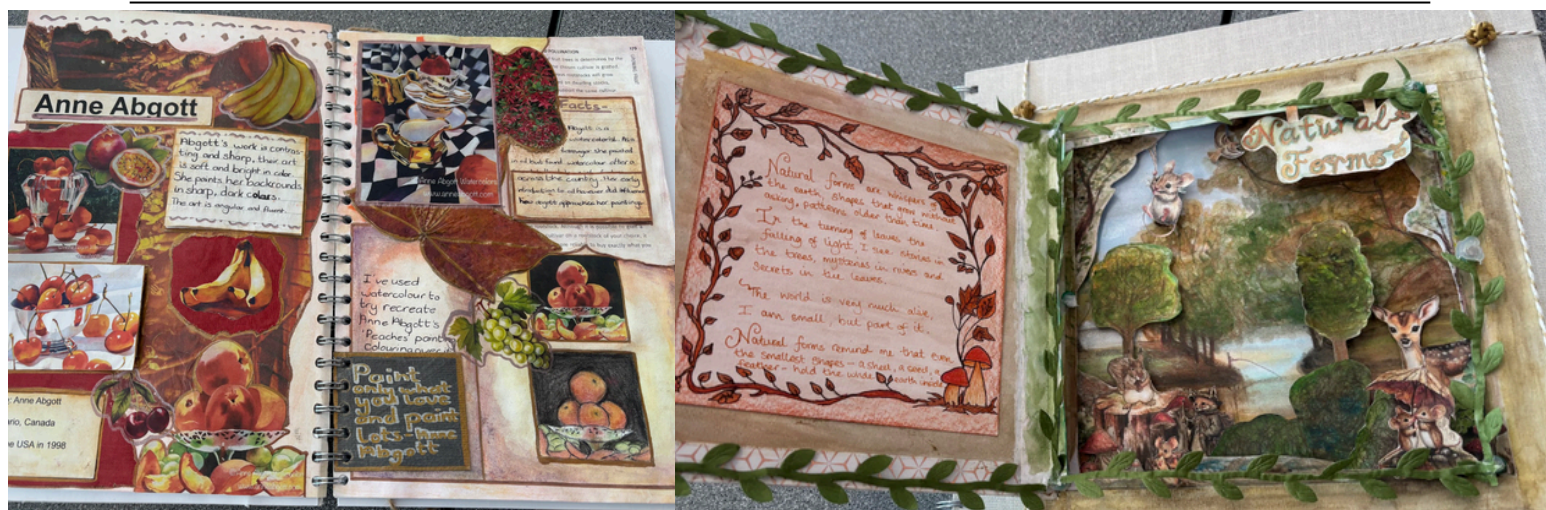 Anne Abgott
Abgott's work is contras-
ting and sharp, their art
is soft and bright in color.
She paints her backrounds
in sharp, dark colours.
The art is angular and fluent.
: Anne Abgott
ario, Canada
e USA in 1998
POLLINATION
Anne Abgott Watercolors
www.anneabgott.com
Facts-
Abgott is a
she painted
across the country. Her early
I've used
watercolour to
try recreate
Anne Abgott's
'Peaches' painting
Colouring over it
Paint
only what
you love
and paint
Lots - Anne
Abgott
Natural forms are whispers of
the earth, shapes that grow without
asking, patterns older than time.
In the turning of leaves the
falling of light, I see stories in
the trees, mysteries in rivers and
secrets in the leaves.
The world is very much alive,
I am small, but part of it.
Natural forms remind me that even
the smallest shapes - a shell, a seed, a
feather - hold the whole earth inside
Natural
Forms